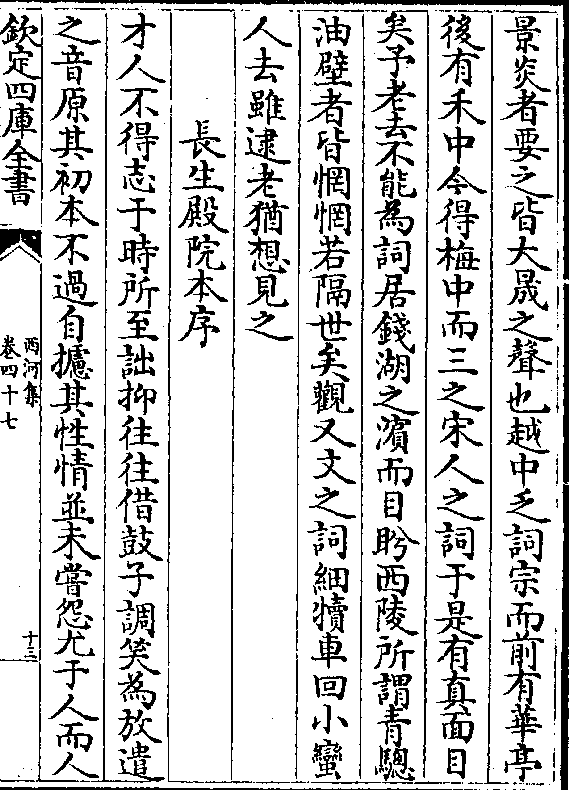 景炎者要之皆大晟之聲也越中乏詞宗而前有華亭
後有禾中今得梅中而三之宋人之詞于是有真面目
矣予老去不能為詞居錢湖之濱而目盻西陵所謂青驄
油壁者皆惘惘若隔世矣觀又文之詞細犢車回小蠻
人去雖逮老猶想見之
長生殿院本序
才人不得志于時所至詘抑往往借鼓子調笑為放遣
之音原其初本不過自攄其性情並未嘗怨尤于人而人
欽定四庫全書
西河集
卷四十七
十三